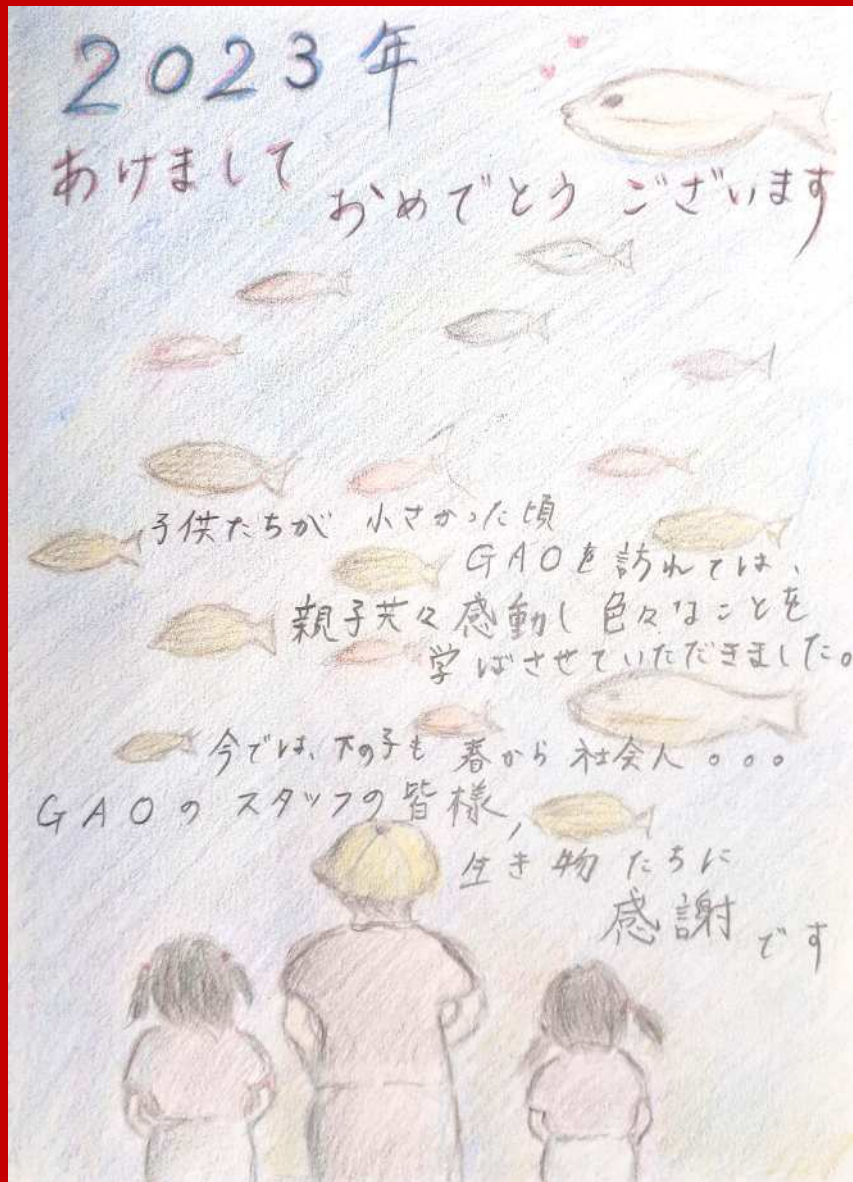 2023年
あけまして
おめでとう ございます
子供たちが 小さかった頃
GAOを訪れては、
親子共々感動し色々なことを
学ばさせていただきました。
今では、下の子も 春から 社会人。。。
GAOの スタッフの皆様,
生き物たちに
感謝です